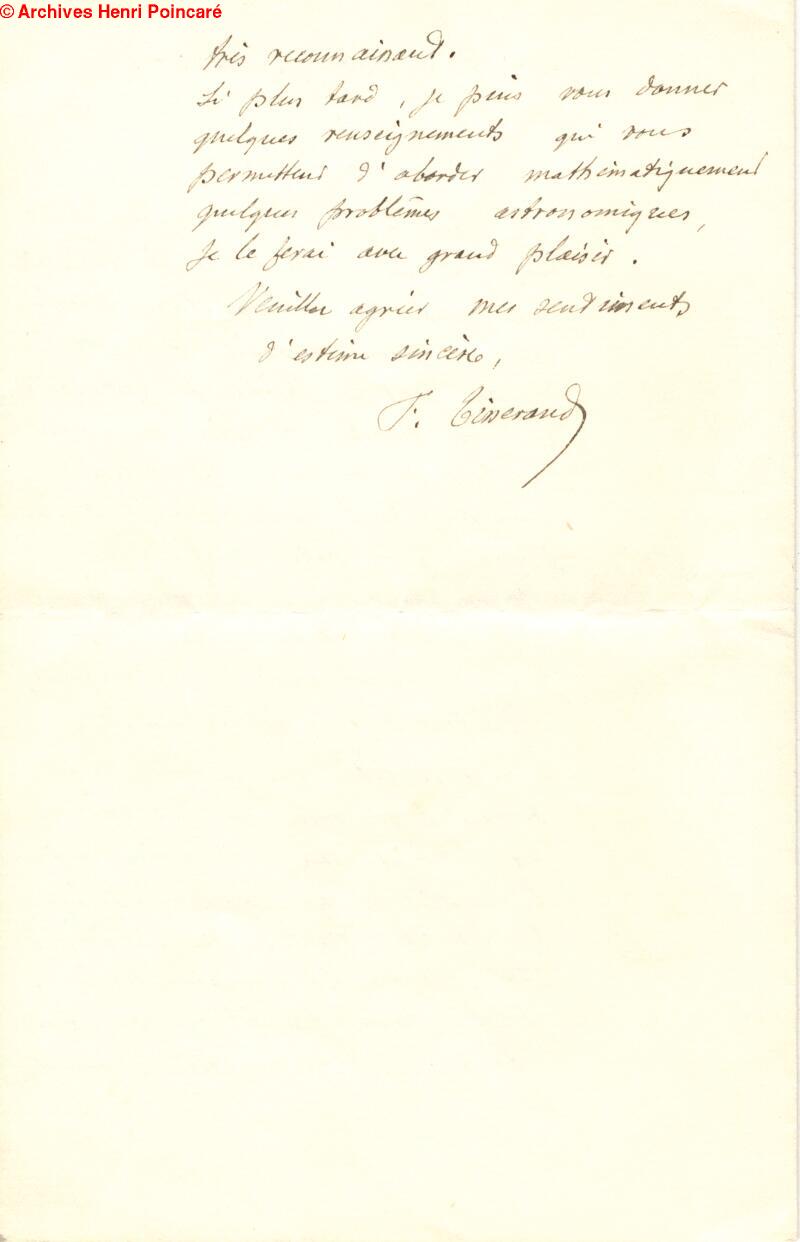 © Archives Henri Poincaré
très reconnaissant.
Si plus tard, je puis vous donner
quelques renseignements qui vous
permettent d'aborder mathématiquement
quelques problèmes astronomiques,
je le ferai avec grand plaisir.
Veuillez agréer mes sentiments
d'estime sincère,
F. Tisserand